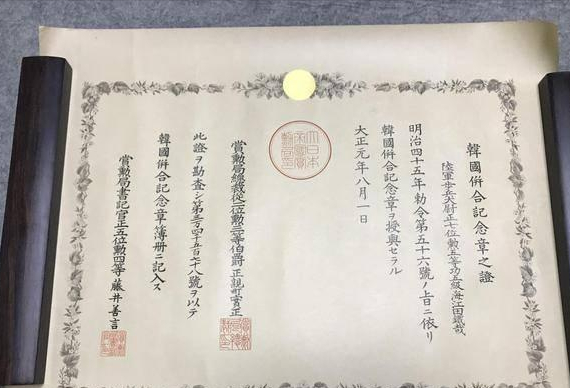 韓國併合記念章之證
陸軍歩兵大尉正七位勲五等功五級海江田鐵哉
明治四十五年勅令第五十六號ノ旨ニ依リ
韓國併合記念章ヲ授與セラル
大正元年八月一日
大日本
帝國賞
勲局印
賞勲局總裁從二位勲一等伯爵正親町實正
此證ヲ勘査シ第三百四十五百二十八號ヲ以テ
韓國併合記念章簿冊ニ記入ス
賞勲局書記官正五位勲四等藤井善言